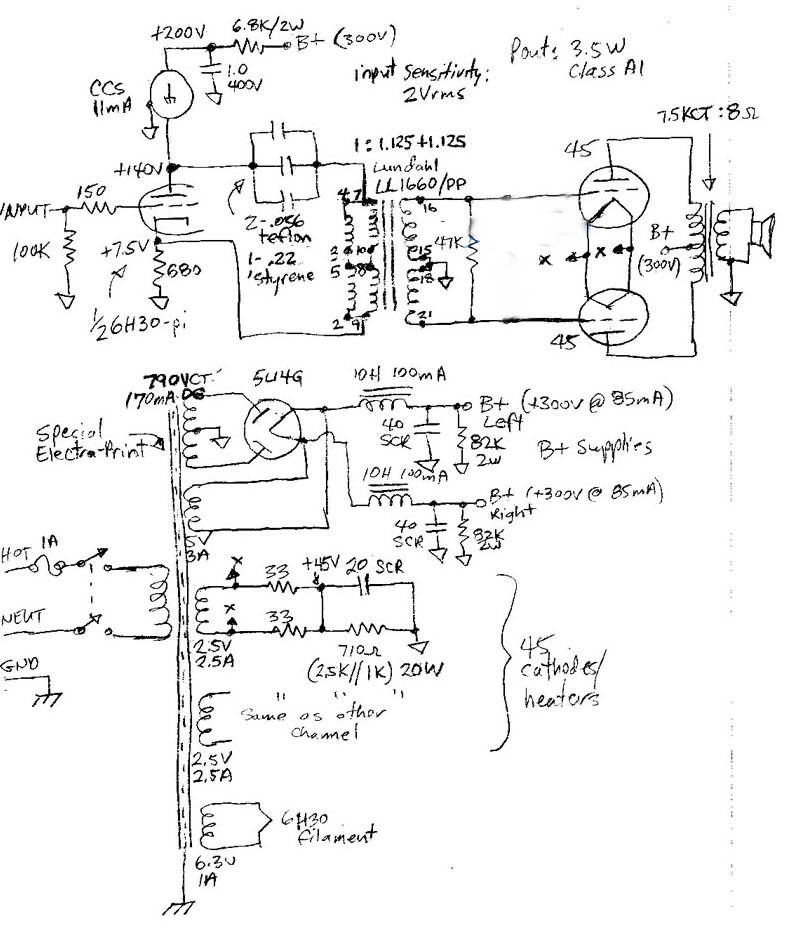 +200V
6.8K/2W
B+ (300V)
1.0
400V
CCS
11mA
input sensitivity:
2Vrms
Pout: 3.5W
Class A1
7.5KCT:8Ω
+140V
1:1.125+1.125
Lundahl
LL1660/PP
45
INPUT
150
100K
+7.5V
680
1/2 6H30-pi
2-.056
teflon
1-.22
'styrene
4
7
2
10
5
8
2
9
16
15
18
21
47K
X
X
B+
(300V)
45
790VCT
170mA DC
5U4G
10H 100mA
B+ (+300V @ 85mA)
Left
40
SCR
82K
2W
B+ Supplies
Special
Electra-Print
10H 100mA
B+ (+300V @ 85mA)
Right
40
SCR
82K
2W
5V
3A
HOT 1A
NEUT
GND
X
33
+45V
20 SCR
X
33
2.5V
2.5A
710Ω
(2.5K//1K) 20W
45
cathodes/
heaters
" " "
Same as other
channel
2.5V
2.5A
6H30
filament
6.3V
1A